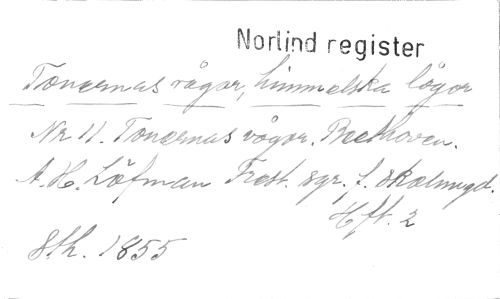 Norlind register
Tonernas vågor, himmelska lågor
Nr 11. Tonernas vågor. Beethoven.
A. H. Löfman Trest. sgr. f. skolungd.
Hft. 2
Sth. 1855